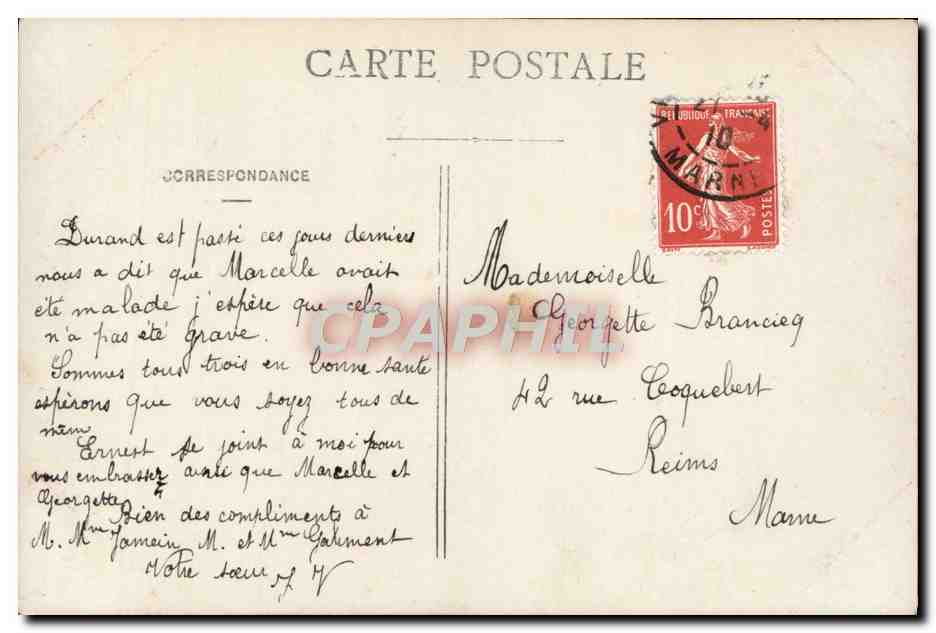 CARTE POSTALE
CORRESPONDANCE
RÉPUBLIQUE FRANÇAISE
27 -4
10
MARNE
10c
POSTES
Durand est passé ces jours derniers
nous a dit que Marcelle avait
été malade j'espère que cela
n'a pas été grave.
Sommes tous trois en bonne santé
espérons que vous soyez tous de
même
Ernest se joint à moi pour
vous embrasser ainsi que Marcelle et
Georgette
Bien des compliments à
M. Mme Jamein M. et Mme Gaument
Votre sœur
Mademoiselle
Georgette Branciecq
42 rue Coquebert
Reims
Marne
CPAPHIL